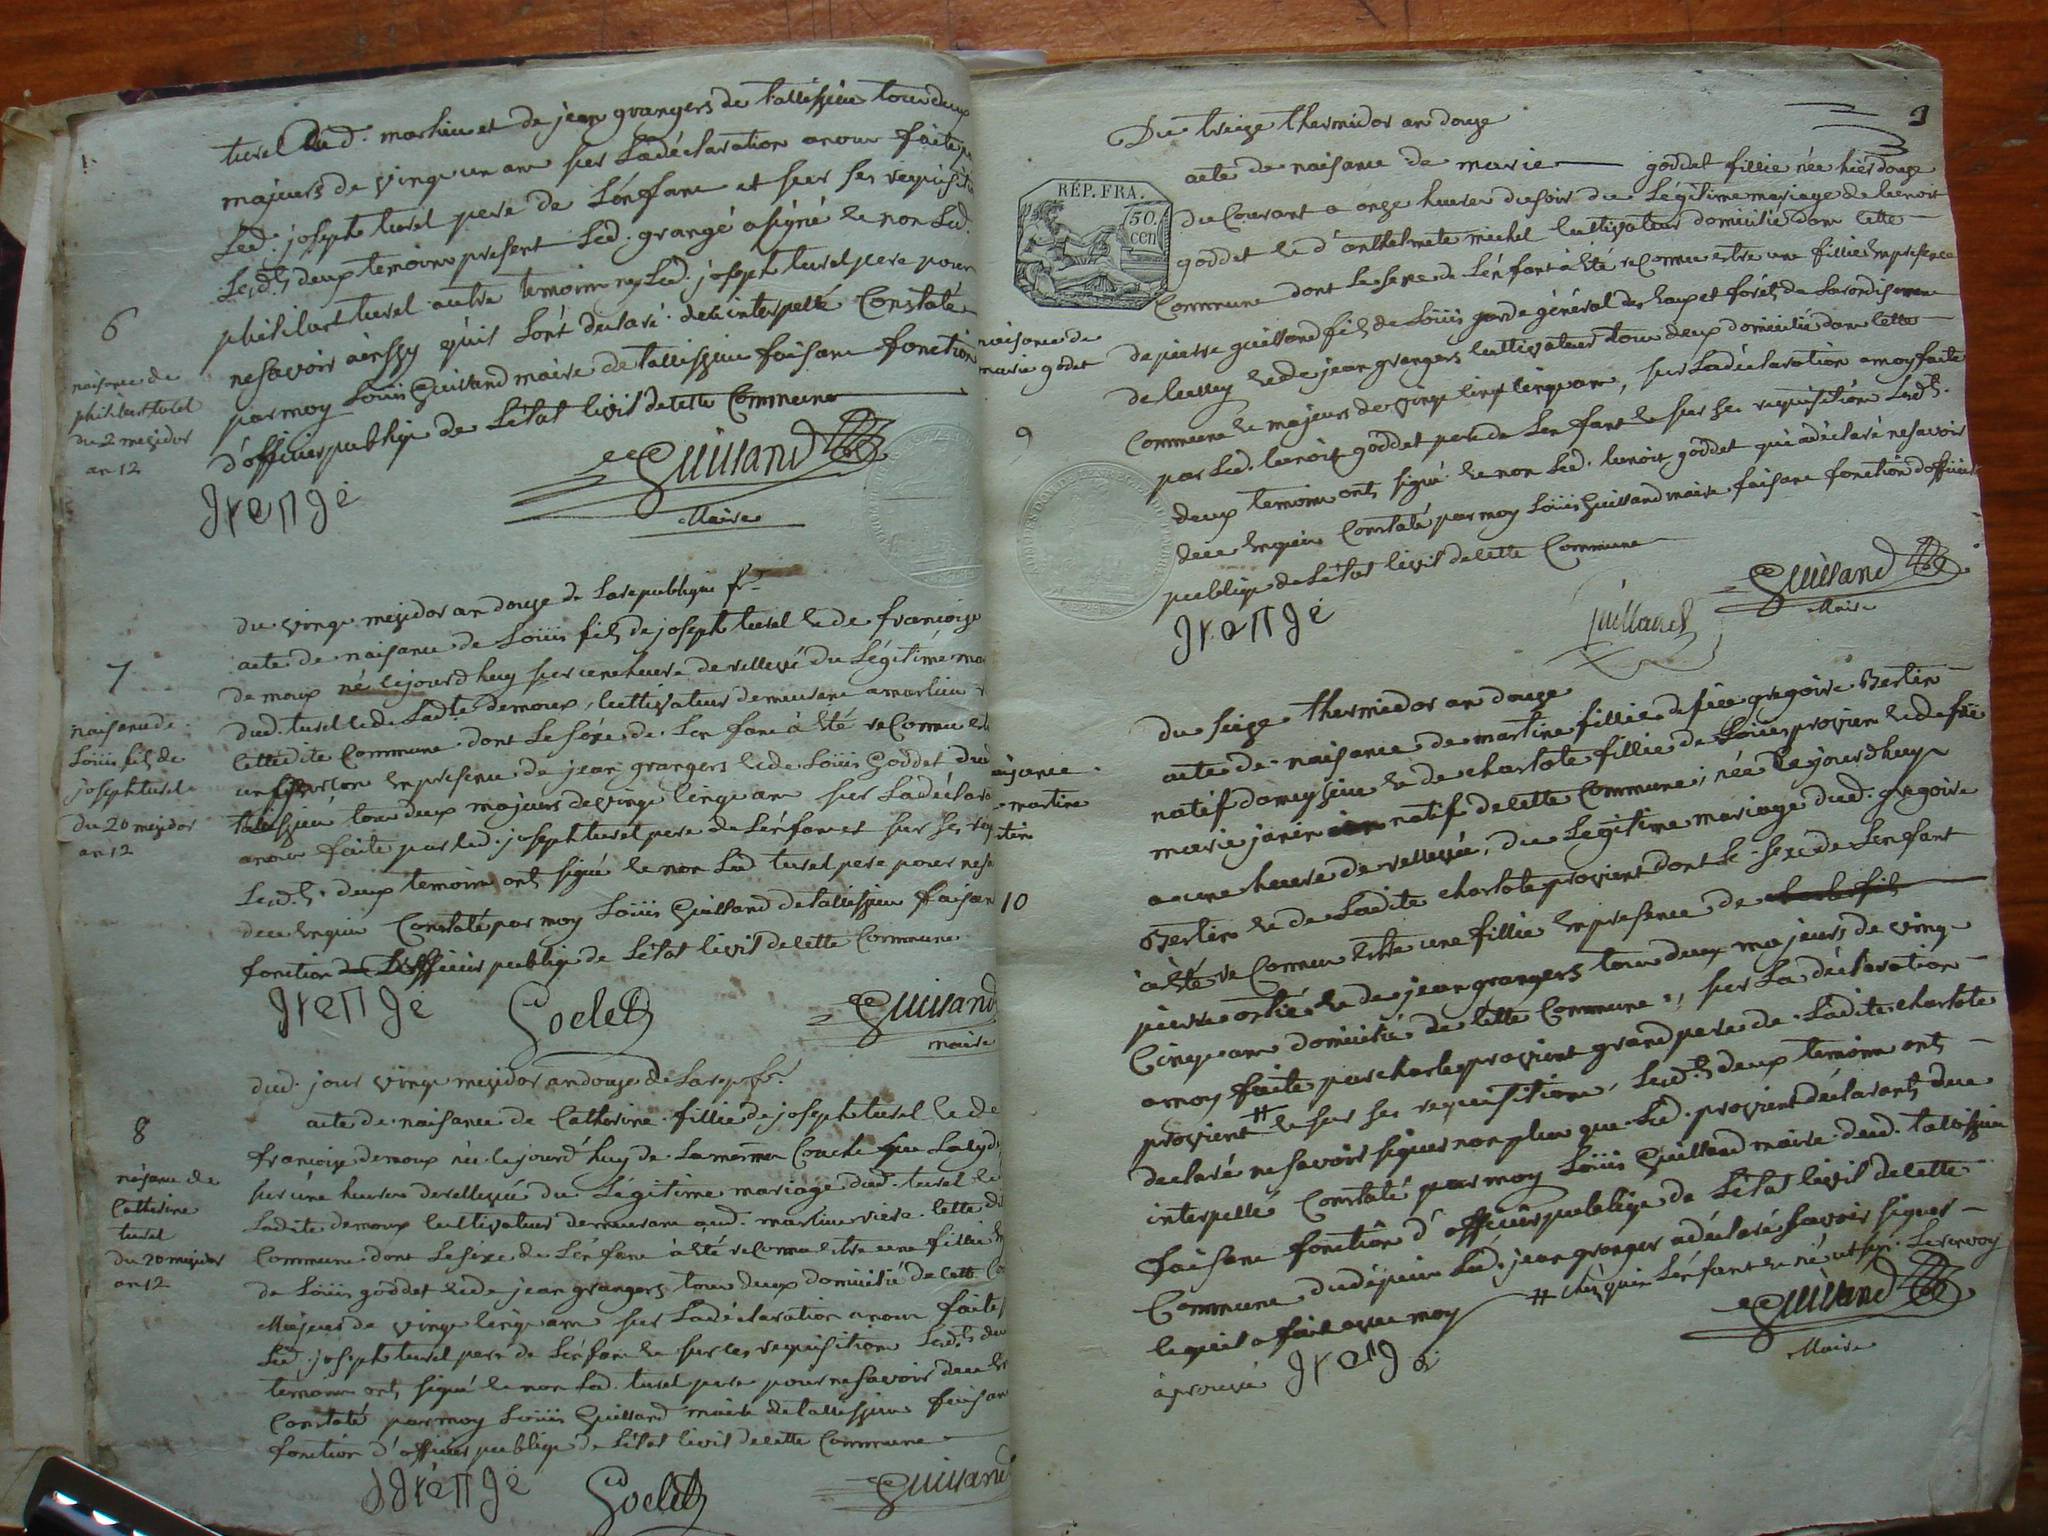 turel dud. marlieu et de jean grangers de tallissieu tous deux
majeurs de vingt un ans sur la déclaration a nous faite
Led. joseph turel pere de Lénfant et sur ses requisition
Lesdts deux temoins present Led. grangé a signé le non Led.
philibert turel autre temoin ny Led. joseph turel pere pour
ne savoir ainssy quil lont declaré de ce interpellé Constaté
par moy Loüis Guilland maire de tallissieu faisant fonction
d'officier publiq de Létat Civil de cette Commune
Grangé
Guilland
Maire
6
naisance de
philibert turel
du 2 mesidor
an 12
du vingt mesidor an douze de La republique fr.
acte de naisance de Loüis fils de joseph turel et de françoise
demoux né cejourdhuy sur une heure de rellevé du Légitime ma
dud. turel et de Ladte demoux, Cultivateur demeurant a marlieu
cettedite Commune dont Le séxe de Lenfant à été reConnu etre
un garcon en presence de jean grangers et de Loüis Goddet dud
tallissieu tous deux majeurs de vingt cinq ans sur La déclara
a nous faite par led. joseph turel pere de Lénfant et sur ses req
Lesdts. deux temoins onts signé le non Led turel pere pour ne sa
de ce enquis Constaté par moy Loüis Guilland de tallissieu faisan
fonction d'officier publiq de Létat Civil de cette Commune
Grangé
Godet
Guilland
maire
7
naisance de
Loüis fils de
joseph turel
du 20 mesidor
an 12
dud. jour vingt mesidor an douze de La rep. fr.
acte de naisance de Catherine fillie de joseph turel et de
françoise demoux née cejourd'huy de La mesme Couche
sur une heure de rellevée du Légitime mariage dud. turel et
Ladite demoux Cultivateur demeurant aud. marlieu cette di
Commune dont Le séxe de Lénfant à été reConnu etre une fillie
de Loüis goddet et de jean grangers tous deux domicilié de cette Co
Majeur de vingt cinq ans sur La déclaration a nous faite
Led. joseph turel pere de Lénfant et sur ces requisition Lesdts deu
temoins onts signé le non Led. turel pere pour ne savoir de ce
Constaté par moy Loüis Guilland maire de tallissieu faisan
fonction d'officier publiq de Létat Civil de cette Commune
Grangé
Godet
Guilland
8
naisance de
Catherine
turel
du 20 mesidor
an 12
9
Du treize thermidor an douze
acte de naisance de marie goddet fillie née hiér douze
du Courant a onze heures du soir du Légitime mariage de benoit
goddet et d'anthelmete michel Cultivateur domicilié dans cette
Commune dont Le sexe de Lénfant à été reConnu estre une fillie en présence
de pierre guilland fils de Loüis garde général des Eaux et forêts de Larondisement
de belley et de jean grangers Cultivateur tous deux domicilié dans cette
Commune et majeurs de vingt cinq ans, sur La déclaration a moy faite
par Led. benoit goddet pere de Lenfant et sur ses requisition Lesdts.
deux temoins onts signé et non Led. benoit goddet qui a déclaré ne savoir
de ce enquis Constaté par moy Loüis Guilland maire faisant fonction d'officier
publiq de Létat Civil de cette Commune
Grangé
Guilland
Guilland
Maire
RÉP. FRA.
50
cen
naisance de
marie godet
9
du seize thermidor an douze
acte de naisance de martine fillie de fue gregoire Berlin
natif dameysieu et de charlote fillie de Loüis provien et de fue
marie janin natif de cette Commune, née cejourdhuy
a une heure de rellevée, du Légitime mariage dud. gregoire
Berlin et de Ladite charlote provient dont Le sexe de Lenfant
à été reConnu estre une fillie en presence de
pierre ostié et de jean grangers tous deux majeurs de vingt
Cinq ans domicilié de cette Commune, sur La déclaration
a moy faite par charles provient grand pere de Ladite charlote
provient # et sur ses requisition, Lesdts deux temoins onts
declaré ne savoir signer non plus que Led. provient declarants due
interpellé Constaté par moy Loüis Guilland maire dud. tallissieu
faisant fonction d'officier publiq de Létat Civil de cette
Commune dudépuis Led. jean granger a déclaré savoir signer
lequel a fait avec moy # chéz qui Lénfant et né
Guilland
Maire
aprouvé Grangé
naisance
martine
10